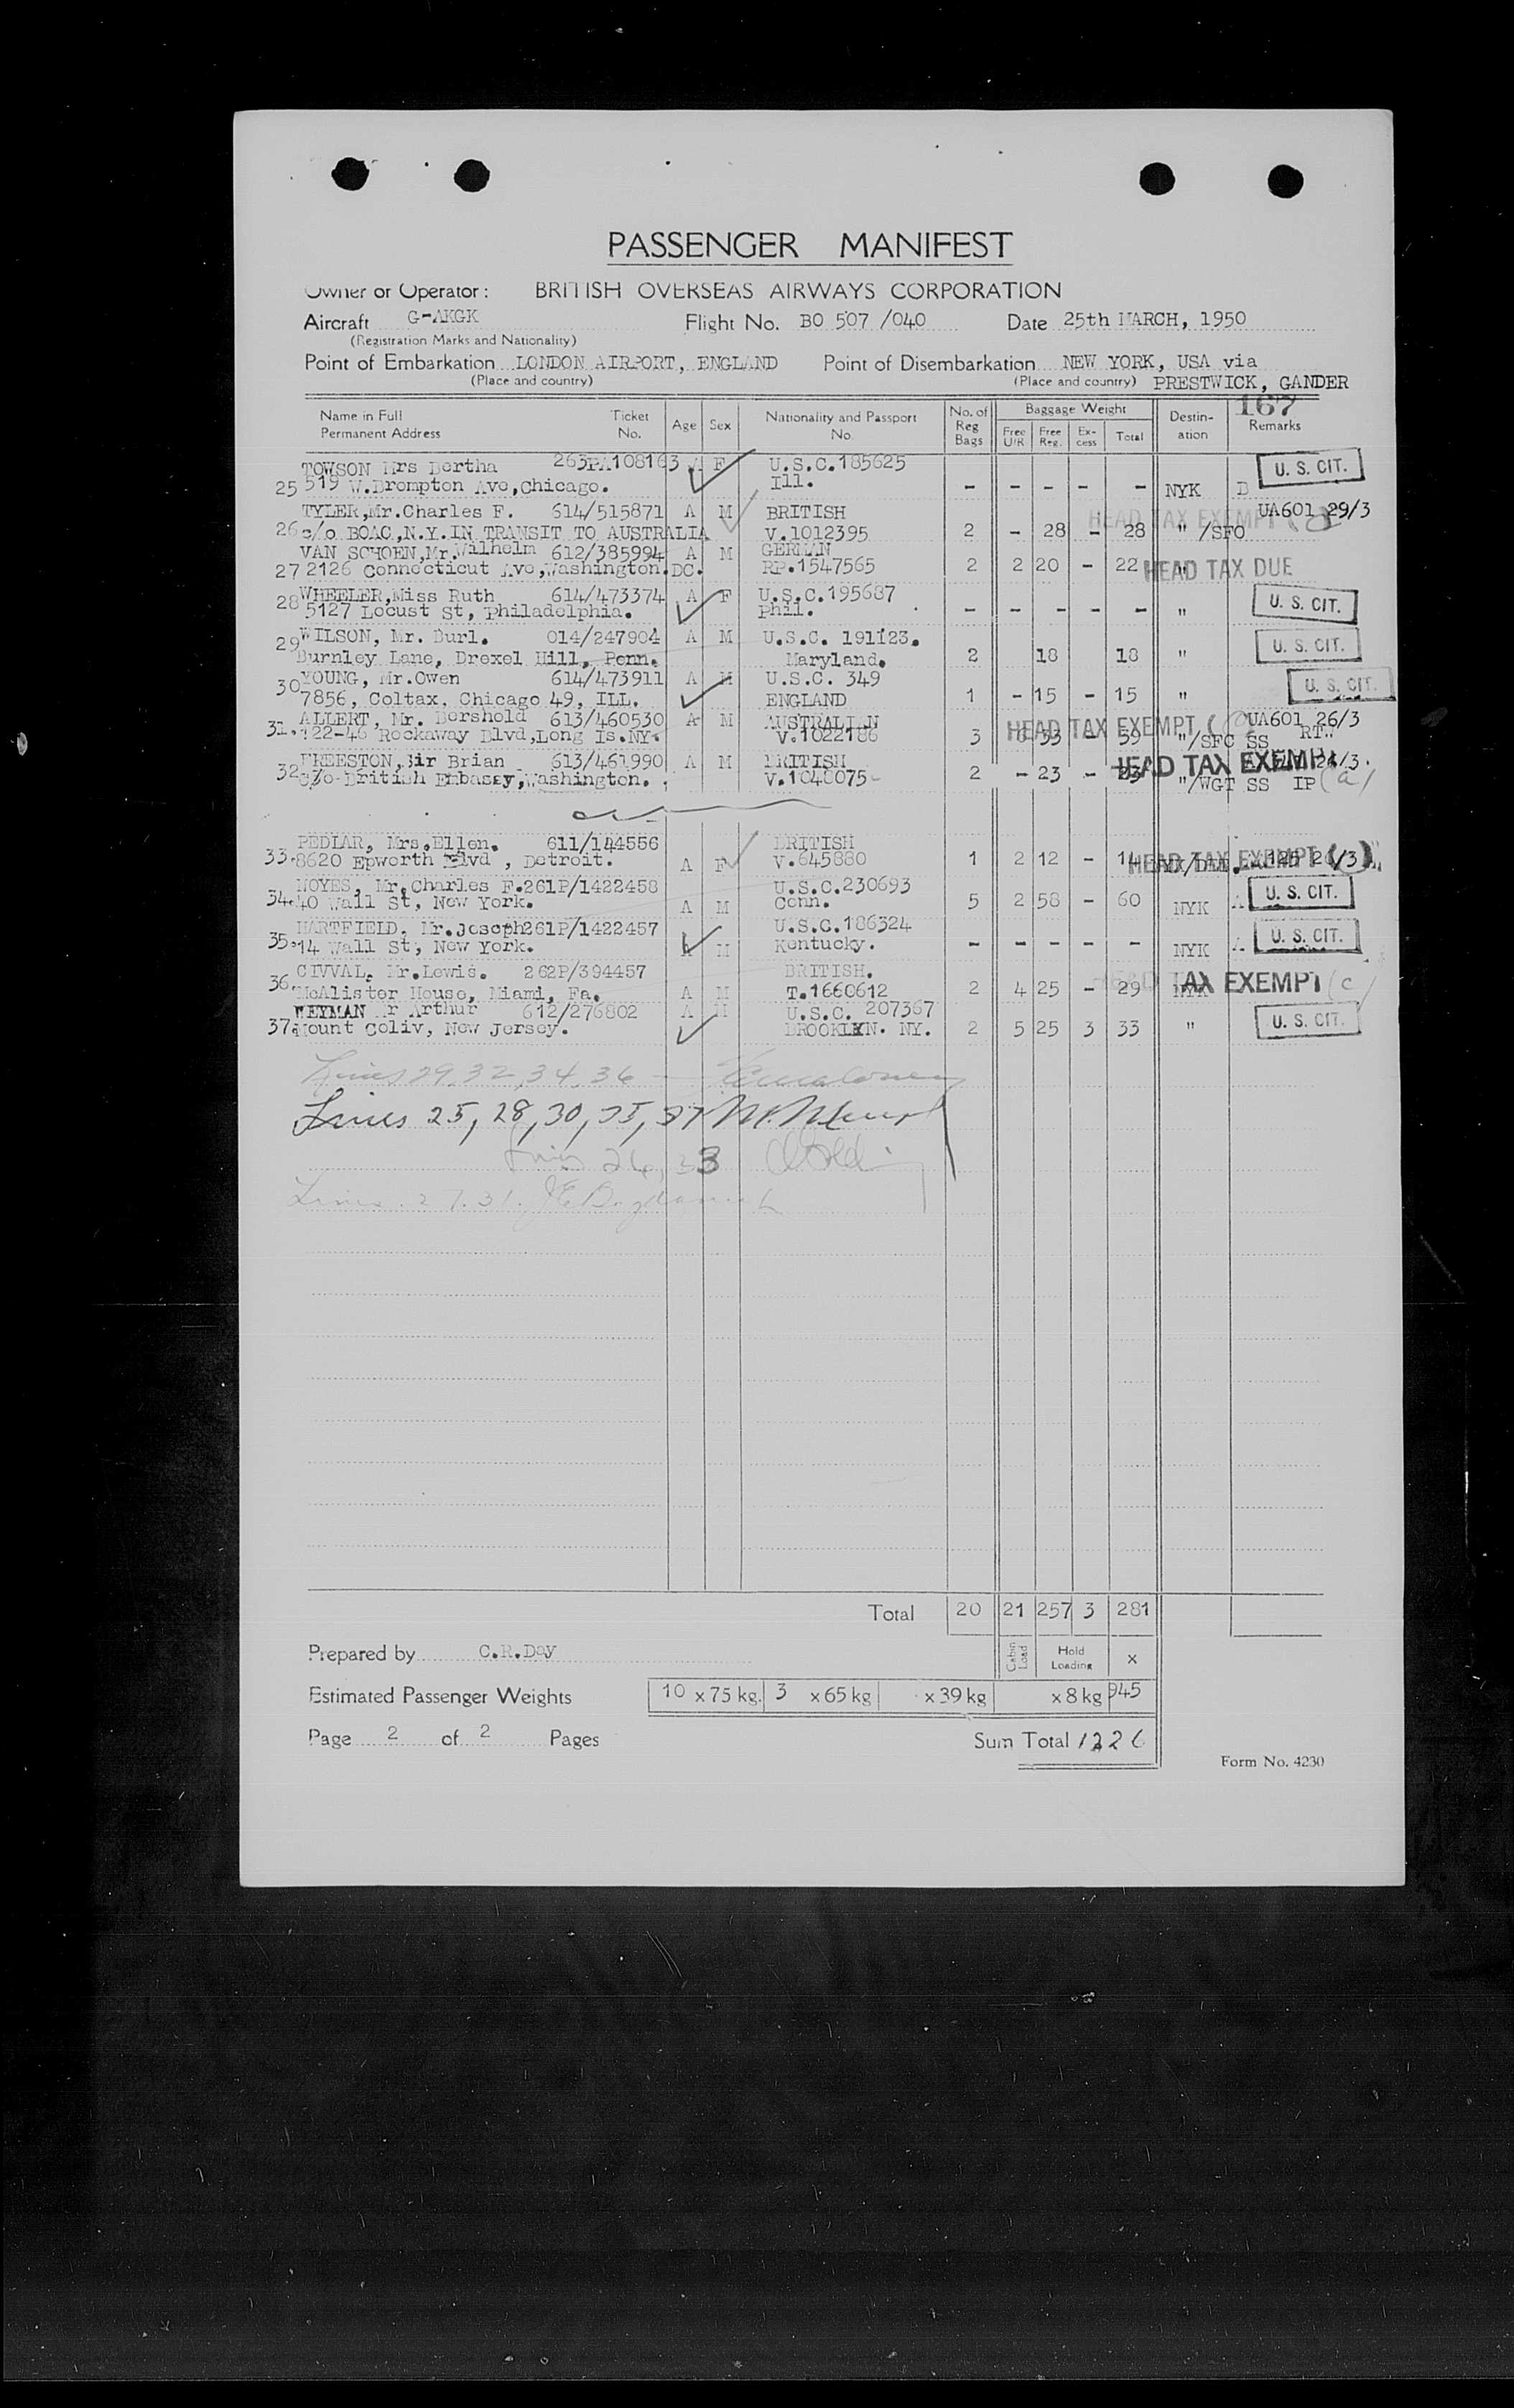 PASSENGER MANIFEST
Owner or Operator: BRITISH OVERSEAS AIRWAYS CORPORATION
Aircraft G-AKGK Flight No. BO 507 /040 Date 25th MARCH, 1950
(Registration Marks and Nationality)
Point of Embarkation LONDON AIRPORT, ENGLAND Point of Disembarkation NEW YORK, USA via
(Place and country) (Place and country) PRESTWICK, GANDER
167
Name in Full Ticket Age Sex Nationality and Passport No. of Baggage Weight Destin- Remarks
Permanent Address No. No. Reg Bags Free U/R Free Reg. Ex-cess Total ation
TOWSON Mrs Bertha 263PA108163 A F U.S.C.185625 U. S. CIT.
25 519 W.Brompton Ave,Chicago. Ill. - - - - - NYK B
TYLER,Mr.Charles F. 614/515871 A M BRITISH UA601 29/3
26 c/o BOAC,N.Y.IN TRANSIT TO AUSTRALIA V.1012395 2 - 28 - 28 " /SFO HEAD TAX EXEMPT
VAN SCHOEN,Mr.Wilhelm 612/385994 A M GERMAN
27 2126 Connecticut Ave,Washington.DC. RP.1547565 2 2 20 - 22 " HEAD TAX DUE
28 WHEELER,Miss Ruth 614/473374 A F U.S.C.195687 U. S. CIT.
5127 Locust St, Philadelphia. Phil. - - - - - "
29 WILSON, Mr. Burl. 014/247904 A M U.S.C. 191123. U. S. CIT.
Burnley Lane, Drexel Hill, Penn. Maryland. 2 18 18 "
30 YOUNG, Mr.Owen 614/473911 A M U.S.C. 349 U. S. CIT.
7856, Coltax, Chicago 49, ILL. ENGLAND 1 - 15 - 15 "
ALLERT, Mr. Bershold 613/460530 A M AUSTRALIAN HEAD TAX EXEMPT UA601 26/3
31. 122-46 Rockaway Blvd,Long Is.NY. V.1022186 3 53 - 59 "/SFO SS RT.
FREESTON,Sir Brian 613/461990 A M BRITISH HEAD TAX EXEMPT
32 c/o British Embassy,Washington. V.1048075 2 - 23 - 23 "/WGT SS IP (a)
PEDLAR, Mrs.Ellen. 611/144556 BRITISH
33. 8620 Epworth Blvd , Detroit. A F V.645880 1 2 12 - 14 HEAD TAX EXEMPT
NOYES, Mr.Charles F. 261P/1422458 U.S.C.230693 U. S. CIT.
34. 40 Wall St, New York. A M Conn. 5 2 58 - 60 NYK A
HARTFIELD, Mr.Joseph 261P/1422457 U.S.C.186324 U. S. CIT.
35. 14 Wall St, New York. A M Kentucky. - - - - - NYK A
CIVVAL, Mr.Lewis. 262P/394457 BRITISH.
36. McAlister House, Miami, Fa. A M T.1660612 2 4 25 - 29 NYK HEAD TAX EXEMPT (c)
WEYMAN Mr Arthur 612/276802 A M U.S.C. 207367 U. S. CIT.
37. Mount Coliv, New Jersey. BROOKLYN. NY. 2 5 25 3 33 "
Lines 29, 32, 34, 36
Lines 25, 28, 30, 35, 37
Lines 26, 33
Lines 27, 31.
Total 20 21 257 3 281
Cabin Load Hold Loading x
Prepared by C.R.Day
Estimated Passenger Weights 10 x 75 kg. 3 x 65 kg x 39 kg x 8 kg 945
Page 2 of 2 Pages Sum Total 1226
Form No. 4230